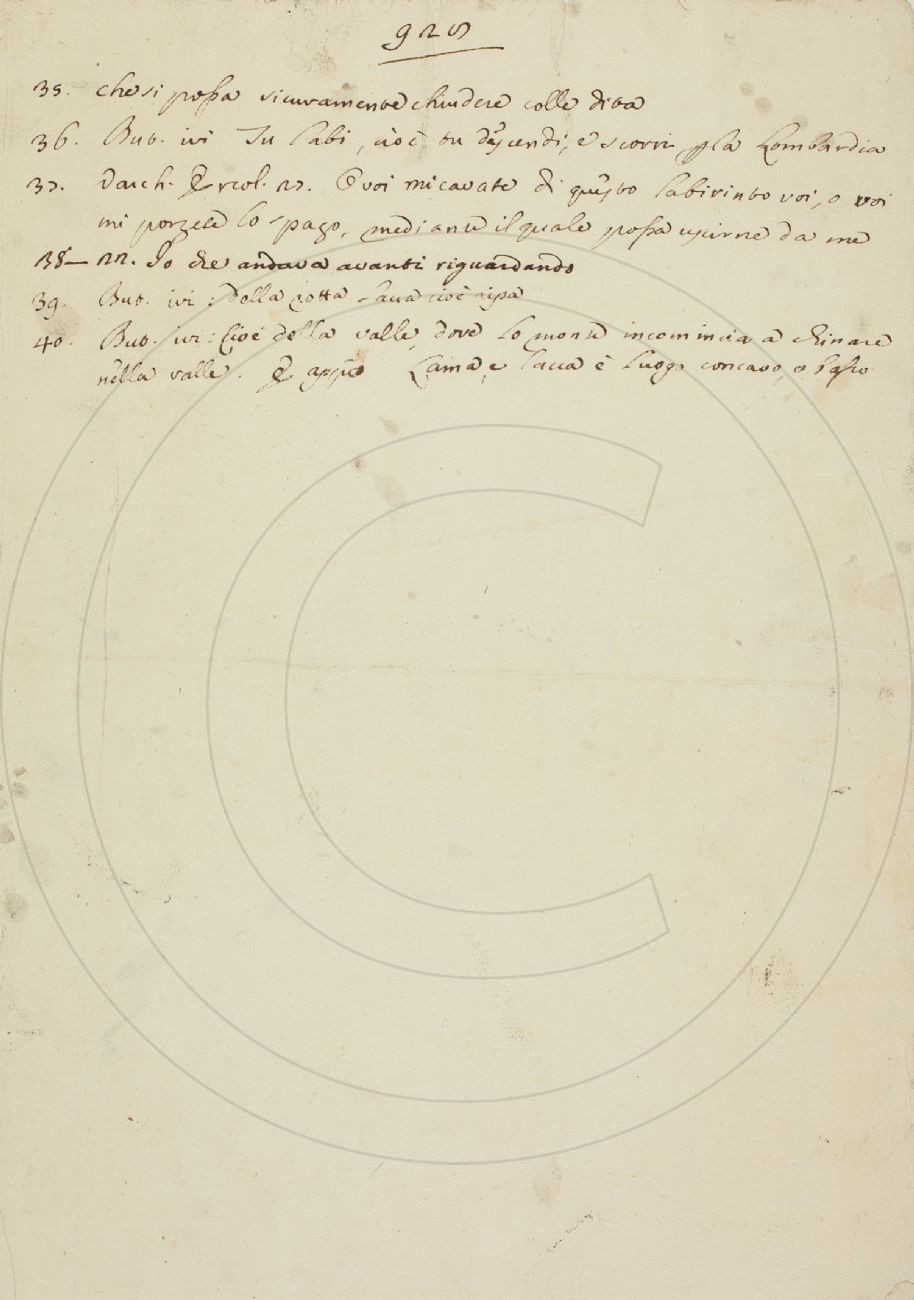 928
35. che si possa sicuramente chiudere colle dita
36. But. ivi Tu labi, cioè tu discendi, e scorri p la Lombardia
37. Varch. Ercol. 27. O voi mi cavate di questo labirinto voi, o voi
mi porgete lo spago, mediante il quale possa uscirne da me
38— 22. Io che andava avanti riguardando
39. But. ivi: Della rotta lacca cioè ripa
40. But. ivi: Cioè della valle, dove lo monte incomincia a chinare
nella valle. E appo Lama, e lacca è luogo concavo, e basso